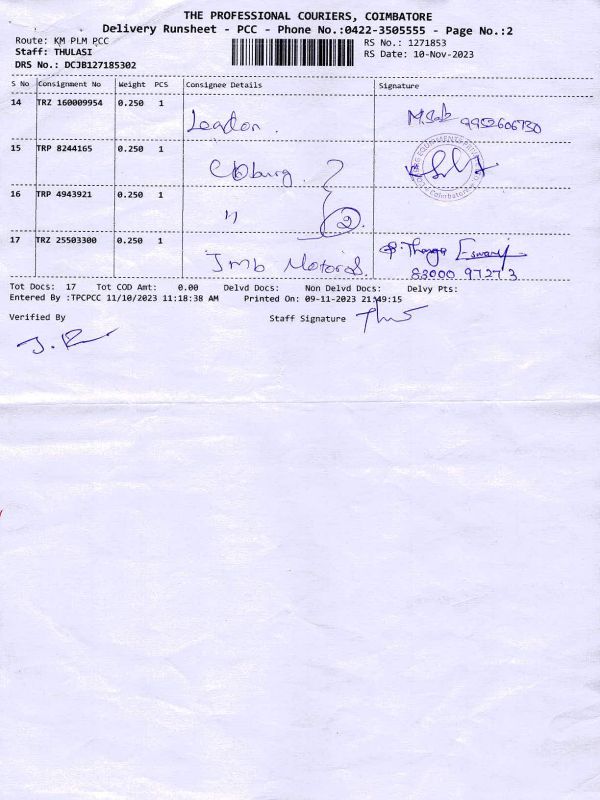 THE PROFESSIONAL COURIERS, COIMBATORE
Delivery Runsheet - PCC - Phone No.:0422-3505555 - Page No.:2
Route: KM PLM PCC
RS No.: 1271853
Staff: THULASI
RS Date: 10-Nov-2023
DRS No.: DCJB127185302
S No Consignment No Weight PCS Consignee Details Signature
14 TRZ 160009954 0.250 1
9952606730
15 TRP 8244165 0.250 1
Coburg
Coimbatore
16 TRP 4943921 0.250 1
" 2
17 TRZ 25503300 0.250 1
Jmb Motors Eswary
83000 97273
Tot Docs: 17 Tot COD Amt: 0.00 Delvd Docs: Non Delvd Docs: Delvy Pts:
Entered By :TPCPCC 11/10/2023 11:18:38 AM Printed On: 09-11-2023 21:49:15
Verified By Staff Signature